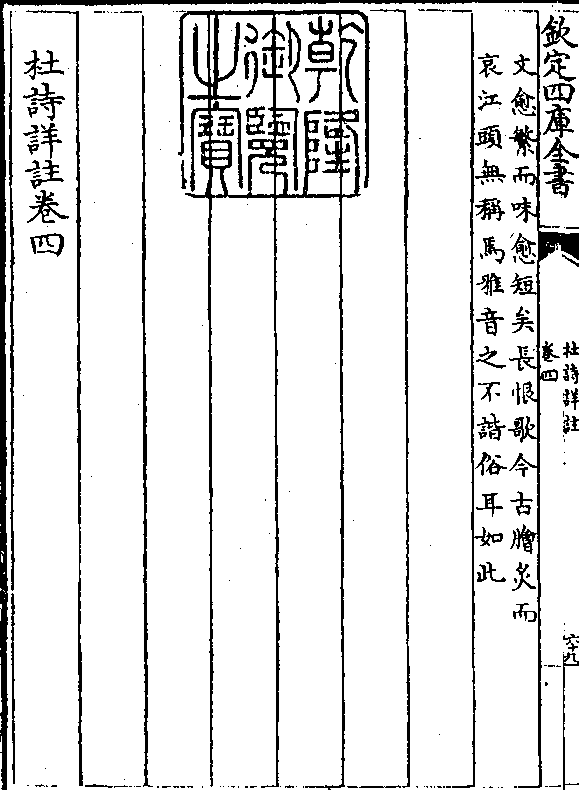 欽定四庫全書
杜詩詳註
卷四
六十九
文愈繁而味愈短矣長恨歌今古膾炙而
哀江頭無稱焉雅音之不諧俗耳如此
乾隆
御覽
之寶
杜詩詳註卷四